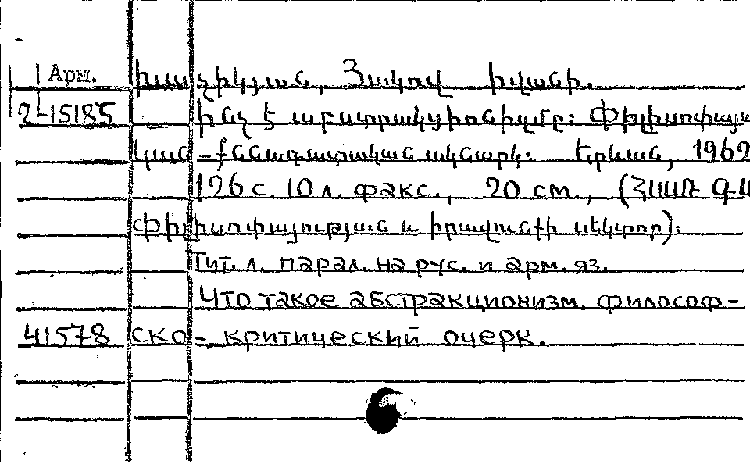 Арм. Խաչիկյան, Հակով Իվանի.
2-15185 Ինչ է աբստրակցիոնիզմը: Փիլիսոփայա
կան-քննադատական ակնարկ: Երևան, 1962
126 с. 10 л. факс., 20 см., (ՀՍՍՌ ԳԱ
Փիլիսոփայության և իրավունքի սեկտոր):
Тит. л. парал. на рус. и арм. яз.
Что такое абстракционизм. Философ-
41578 ско-критический очерк.